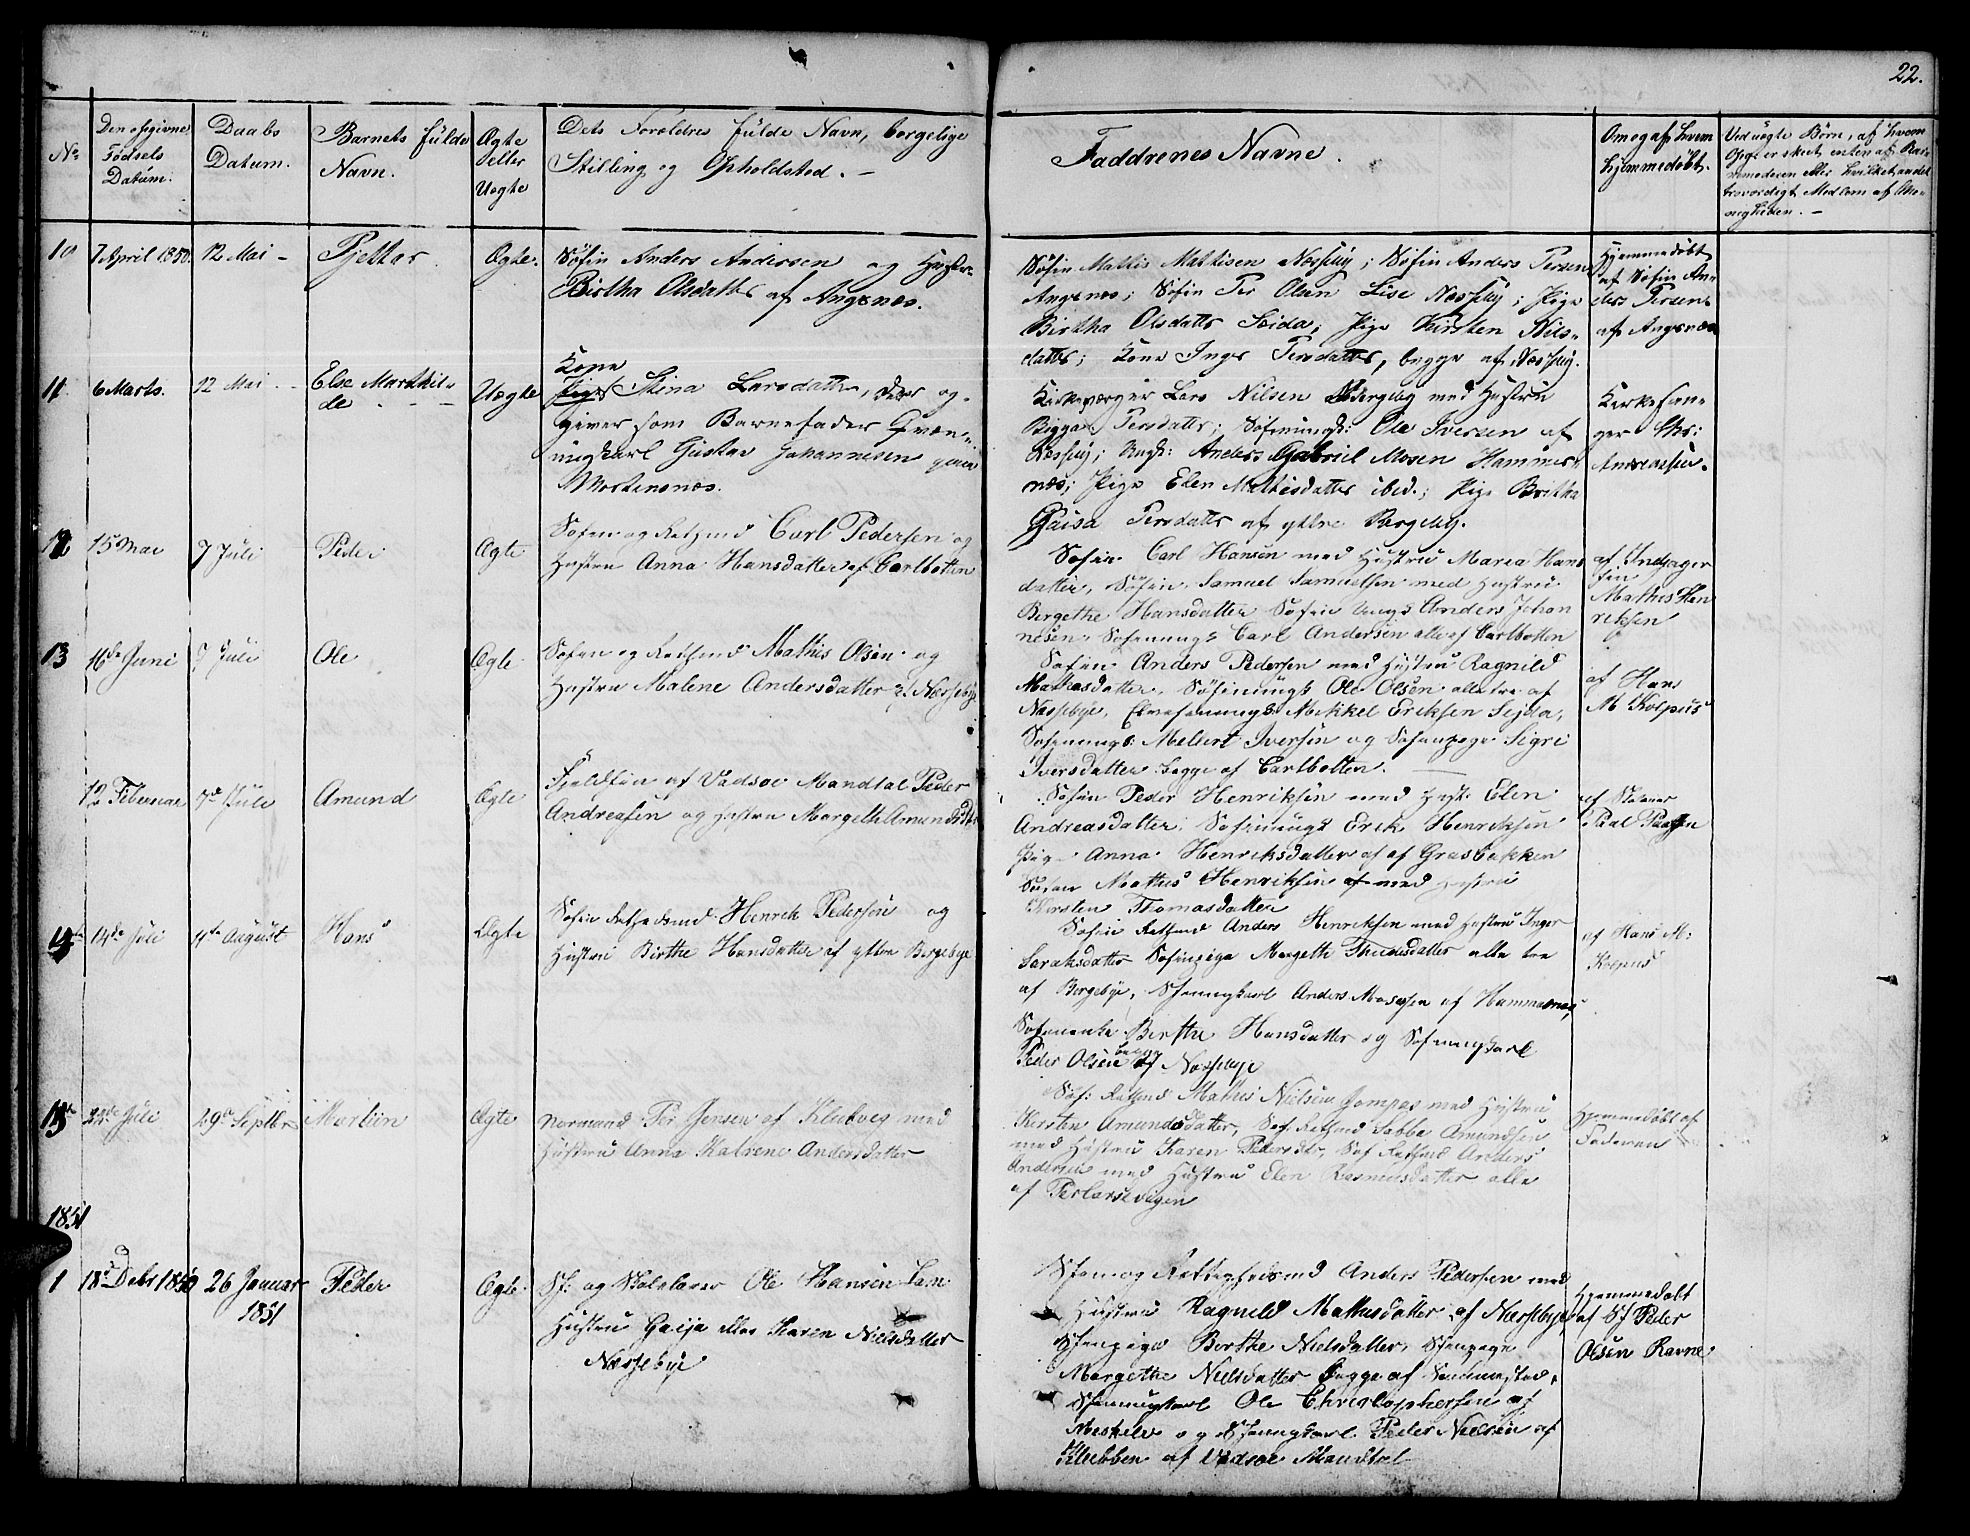 22.
No
Den opgivne
Fødsels
Datum.
Daabs
Datum.
Barnets fulde
Navn.
Ægte
eller
Uægte
Dets Forældres fulde Navn, borgelige
Stilling og Opholdsted. –
Faddrenes Navne.
Om og af hvem
hjemmedøbt.
Ved uægte Børn, af hvem
Opgi er skeet, enten af Bar-
nemoderen eller hvilket andet
troværdigt Medlem af Me-
nigheden. –
10
7 April 1850.
12 Mai –
Pjettar
Ægte.
Søfin Anders Andersen og Hustru
Birtha Olsdatter af Angsnæs.
Søfin Mattis Mathisen Næsseby; Søfin Anders Persen
Angsnæs; Søfin Per Olsen Lise Næsseby; Pige
Birtha Olsdatter Seida; Pige Kirsten Nils-
datter; Kone Inger Persdatter, begge af Næsseby.
Hjemmedøbt
af Søfin An-
ders Persen
af Angsnæs
11
6 Marts.
12 Mai
Else Marthil-
de
Uægte
Kone
Pige Stina Larsdatter, der op-
giver som Barnefader Qvæn-
ungkarl Gustav Johannesen
Mortensnæs.
Kirkeværger Lars Nilsen Bergeby med Hustru
Bigga Persdatter; Søfinungk: Ole Iversen af
Næsseby; Ungk: Anders Gabriel Mosen Hammer-
næs; Pige Elen Mathisdatter ibid.; Pige Britha
Gaisa Persdatter af ytre Bergeby.
Kirkesan-
ger Chr:
Andreassen.
12
15 Mai
7 Juli
Peder
Ægte
Søfin og Retsmd Carl Pedersen og
Hustru Anna Hansdatter af Carlbotten
Søfin Carl Hansen med Hustru Maria Hans
datter, Søfin Samuel Samuelsen med Hustru
Bergethe Hansdatter Søfin Ungk Anders Johan
nesen. Søfinungk Carl Andersen alle af Carlbotten
af Indhager
fin
Mathis Hen
riksen
13
16de Juni
7 Juli
Ole
Ægte
Søfin og Retsmd Mathis Olsen og
Hustru Malene Andersdatter af Næsseby
Søfin Anders Pedersen med Hustru Ragnild
Mathisdatter, Søfinungk Ole Olsen alle tre af
Næssebye, Elvefinungk Mikkel Eriksen Sejda,
Søfinungk Mellert Iversen og Søfinpige Sigri
Iversdatter begge af Carlbotten.
af Hans
M Kolpus
12 Februar
7de Juli
Amund
Ægte
Fjeldfin af Vadsøe Mandtal Peder
Andreasen og Hustru Margeth Amundsdtr
Søfin Peder Henriksen med Hust: Elen
Andreasdatter, Søfinungk Erik Henriksen
Pige Anna Henriksdatter af af Grasbakken
Søfin Mathis Henriksen af med Hustru
Kirsten Thomasdatter
af Skolær
Paal Paasen
14
14de Juli
11te August
Hans
Ægte
Søfin Retsedsmd Henrik Pedersen og
Hustru Birthe Hansdatter af ytre Bergebye
Søfin Retsmd Anders Henriksen med Hustru Inger
Saraksdatter Søfinpige Margeth Thudesdatter alle tre
af Bergebye, Sfinungkarl Anders Mosesen af Hammernæs,
Søfinenke Birthe Hansdatter og Søfinungkarl
Peder Olsen begge af Næssebye
af Hans M.
Kolpus
15
22de Juli
29de Septbr
Martin
Ægte
Normand Per Jensen af Klubvig med
Hustru Anna Katrene Andersdatter
Søf: Retsmd Mathis Nielsen Gompas med Hustru
Kirsten Amundsdatter, Søf Retsmd Sabba Amundsen
med Hustru Karen Pedersdtr, Søf Retsmd Anders
Andersen med Hustru Elen Rasmusdatter alle
af Perlarsevigen
Hjemmedøbt af
Faderen
1851
1
18de Debr 1850
26 Januar
1851
Peder
Ægte
Sf: og Skolelærer Ole Hansen Lam
Hustru Gaija eller Karen Nielsdatter
Næssebye
Sfin og Rettighedsmd Anders Pedersen med
Hustru Ragnild Mathisdatter af Næssebye
Sfinpige Berthe Nielsdatter, Sfinpige
Margethe Nielsdatter begge af Sandmested,
Sfinungkarl Ole Christophersen af
Meskelv og Sfinungkarl Peder Nielsen af
Klubben af Vadsøe Mandtal
Hjemmedøbt
af Sf Peder
Olsen Ravne